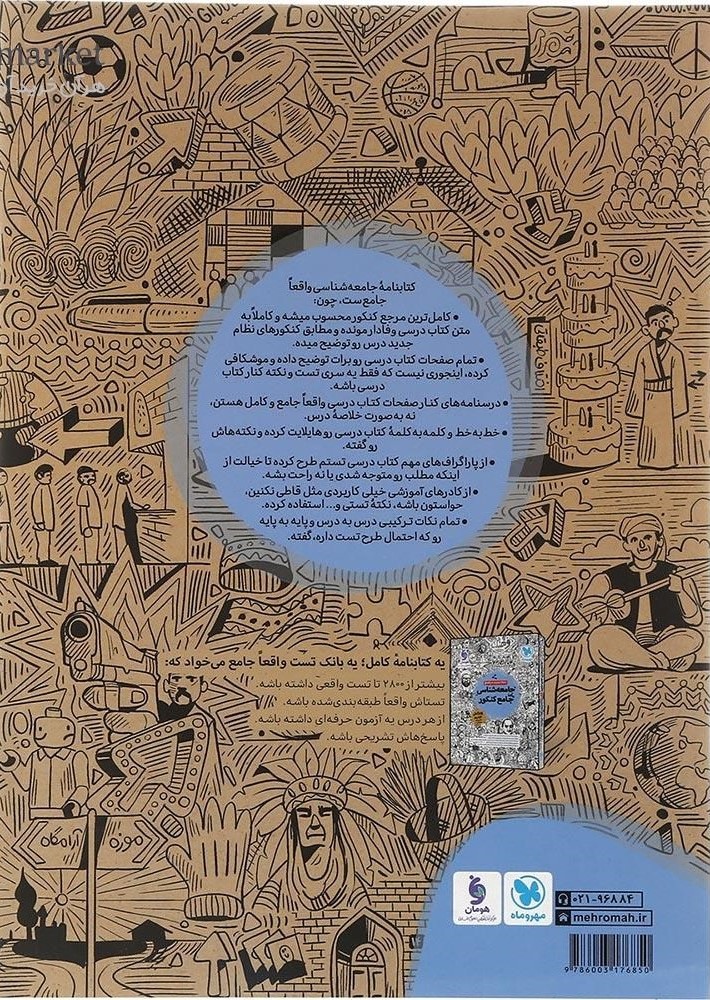 market
کتابنامهٔ جامعه‌شناسی واقعاً
جامع‌ست، چون:
• کامل‌ترین مرجع کنکور محسوب میشه و کاملاً به
متن کتاب درسی وفادار مونده و مطابق کنکورهای نظام
جدید درس رو توضیح میده.
• تمام صفحات کتاب درسی رو برات توضیح داده و موشکافی
کرده، اینجوری نیست که فقط یه سری تست و نکته کنار کتاب
درسی باشه.
• درسنامه‌های کنار صفحات کتاب درسی واقعاً جامع و کامل هستن،
نه به‌صورت خلاصهٔ درس.
• خط‌به‌خط و کلمه‌به‌کلمهٔ کتاب درسی رو هایلایت کرده و نکته‌هاش
رو گفته.
• از پاراگراف‌های مهم کتاب درسی تستم طرح کرده تا خیالت از
اینکه مطلب رو متوجه شدی یا نه راحت بشه.
• از کادرهای آموزشی خیلی کاربردی مثل قاطی نکنین،
حواستون باشه، نکتهٔ تستی و... استفاده کرده.
• تمام نکات ترکیبی درس به درس و پایه به پایه
رو که احتمال طرح تست داره، گفته.
یه کتابنامهٔ کامل؛ یه بانک تست واقعاً جامع می‌خواد که:
بیشتر از ۲۸۰۰ تا تست واقعی داشته باشه.
تستاش واقعاً طبقه‌بندی‌شده باشه.
از هر درس یه آزمون حرفه‌ای داشته باشه.
پاسخ‌هاش تشریحی باشه.
جامعه‌شناسی
جامع کنکور
موزه
آرامگاه
هومان
مهروماه
۰۲۱-۹۶۸۸۴
mehromah.ir
9 786003 176850